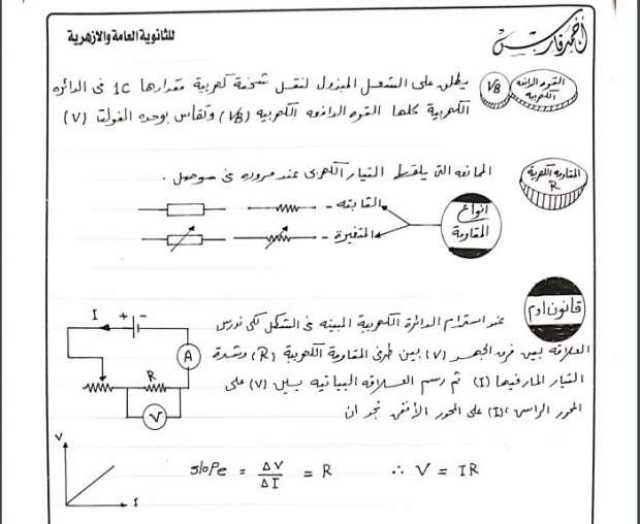 أحمد فارس
للثانوية العامة والازهرية
القوه الدافعه الكهربيه VB
يطلق على الشغل المبذول لنقل شحنة كهربية مقدارها 1C فى الدائره
الكهربية كلها القوه الدافعه الكهربيه (VB) وتقاس بوحده الفولت (V)
المقاومه الكهربية R
الممانعه التى يلقاها التيار الكهربى عند مروره فى موصل .
انواع المقاومة
الثابته -
المتغيرة -
قانون اوم
عند استخدام الدائرة الكهربية المبينه فى الشكل لكى ندرس
العلاقه بين فرق الجهد (V) بين طرفى المقاومة الكهربية (R) وشدة
التيار المار فيها (I) ثم رسم العلاقه البيانيه بين (V) على
المحور الراسى ،(I) على المحور الأفقى نجد ان
I + -
A
R
V
V
I
slope = ΔV/ΔI = R ∴ V = IR